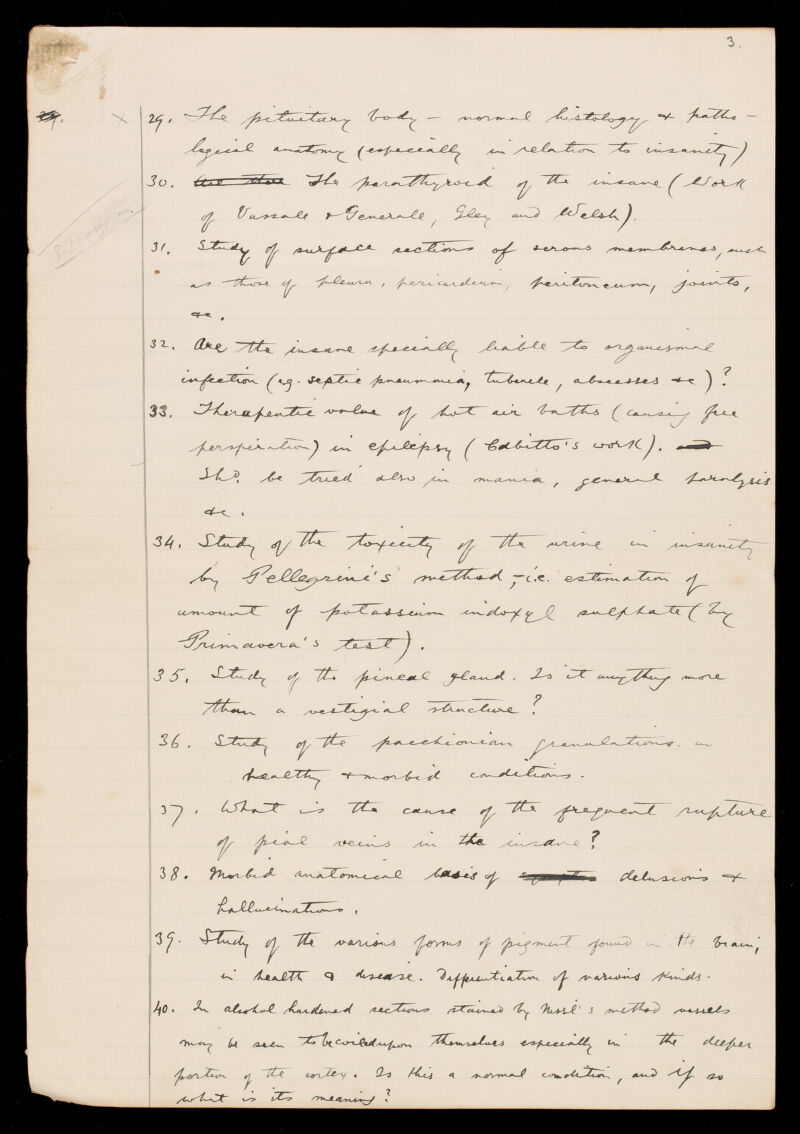 3.
29. × 29. The pituitary body – normal histology & patho-
logical anatomy (especially in relation to insanity)
30. Are there The parathyroid of the insane (Work
of Vassale & Generale, Gley and Welsh).
31. Study of surface sections of serous membranes, such
as those of pleura, pericardium, peritoneum, joints,
&c.
32. Are the insane specially liable to organismal
infection (eg. septic pneumonia, tubercle, abscesses &c)?
33. Therapeutic value of hot air baths (causing free
perspiration) in epilepsy (Cabitto's work).
Shd. be tried also in mania, general paralysis
&c.
34. Study of the toxicity of the urine in insanity
by Pellegrini's method, – i.e. estimation of
amount of potassium indoxyl sulphate (by
Primavera's test).
35. Study of the pineal gland. Is it anything more
than a vestigial structure?
36. Study of the pacchionian granulations in
healthy & morbid conditions.
37. What is the cause of the frequent rupture
of pial veins in the insane?
38. Morbid anatomical basis of delusions &
hallucinations.
39. Study of the various forms of pigment found in the brain,
in health & disease. Differentiation of various kinds.
40. In alcohol hardened sections stained by Nissl's method vessels
may be seen to be coiled upon themselves especially in the deeper
portion of the cortex. Is this a normal condition, and if so
what is its meaning?